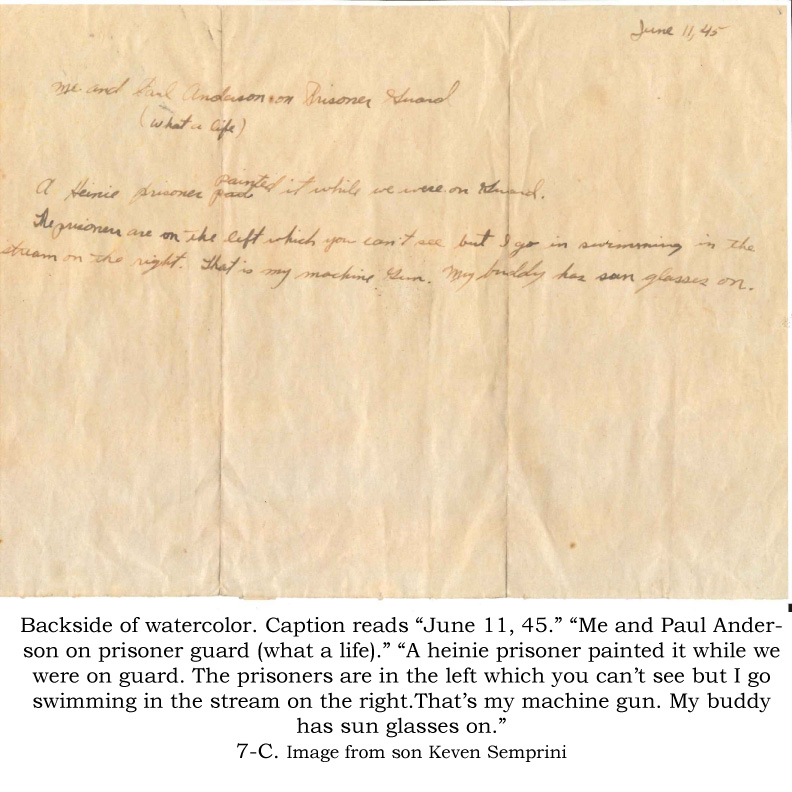 June 11, 45
me and Paul Anderson on Prisoner Guard
(what a life)
A Heinie prisoner painted it while we were on Guard.
The prisoners are on the left which you can't see but I go in swimming in the
stream on the right. That is my machine Gun. My buddy has sun glasses on.
Backside of watercolor. Caption reads “June 11, 45.” “Me and Paul Ander-
son on prisoner guard (what a life).” “A heinie prisoner painted it while we
were on guard. The prisoners are in the left which you can’t see but I go
swimming in the stream on the right.That’s my machine gun. My buddy
has sun glasses on.”
7-C. Image from son Keven Semprini